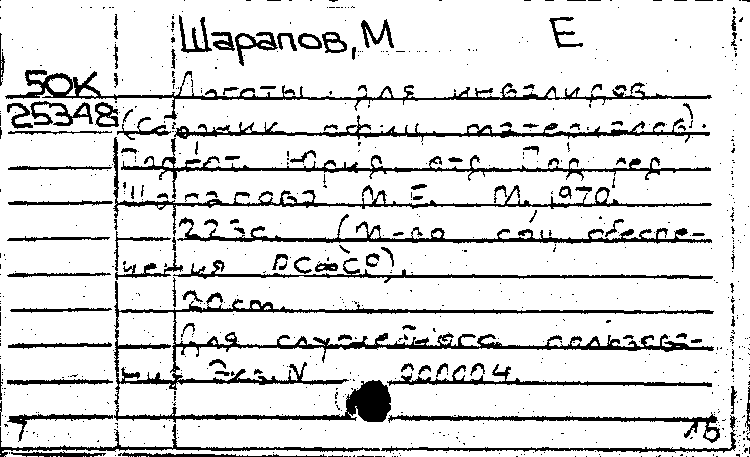 Шарапов, М Е
50К Льготы для инвалидов.
25348 (Сборник офиц. материалов).
Подгот. Юрид. отд. Под ред.
Шарапова М.Е. М., 1970.
223с. (М-во соц. обеспе-
чения РСФСР).
20см.
Для служебного пользова-
ния Экз. N 000004.